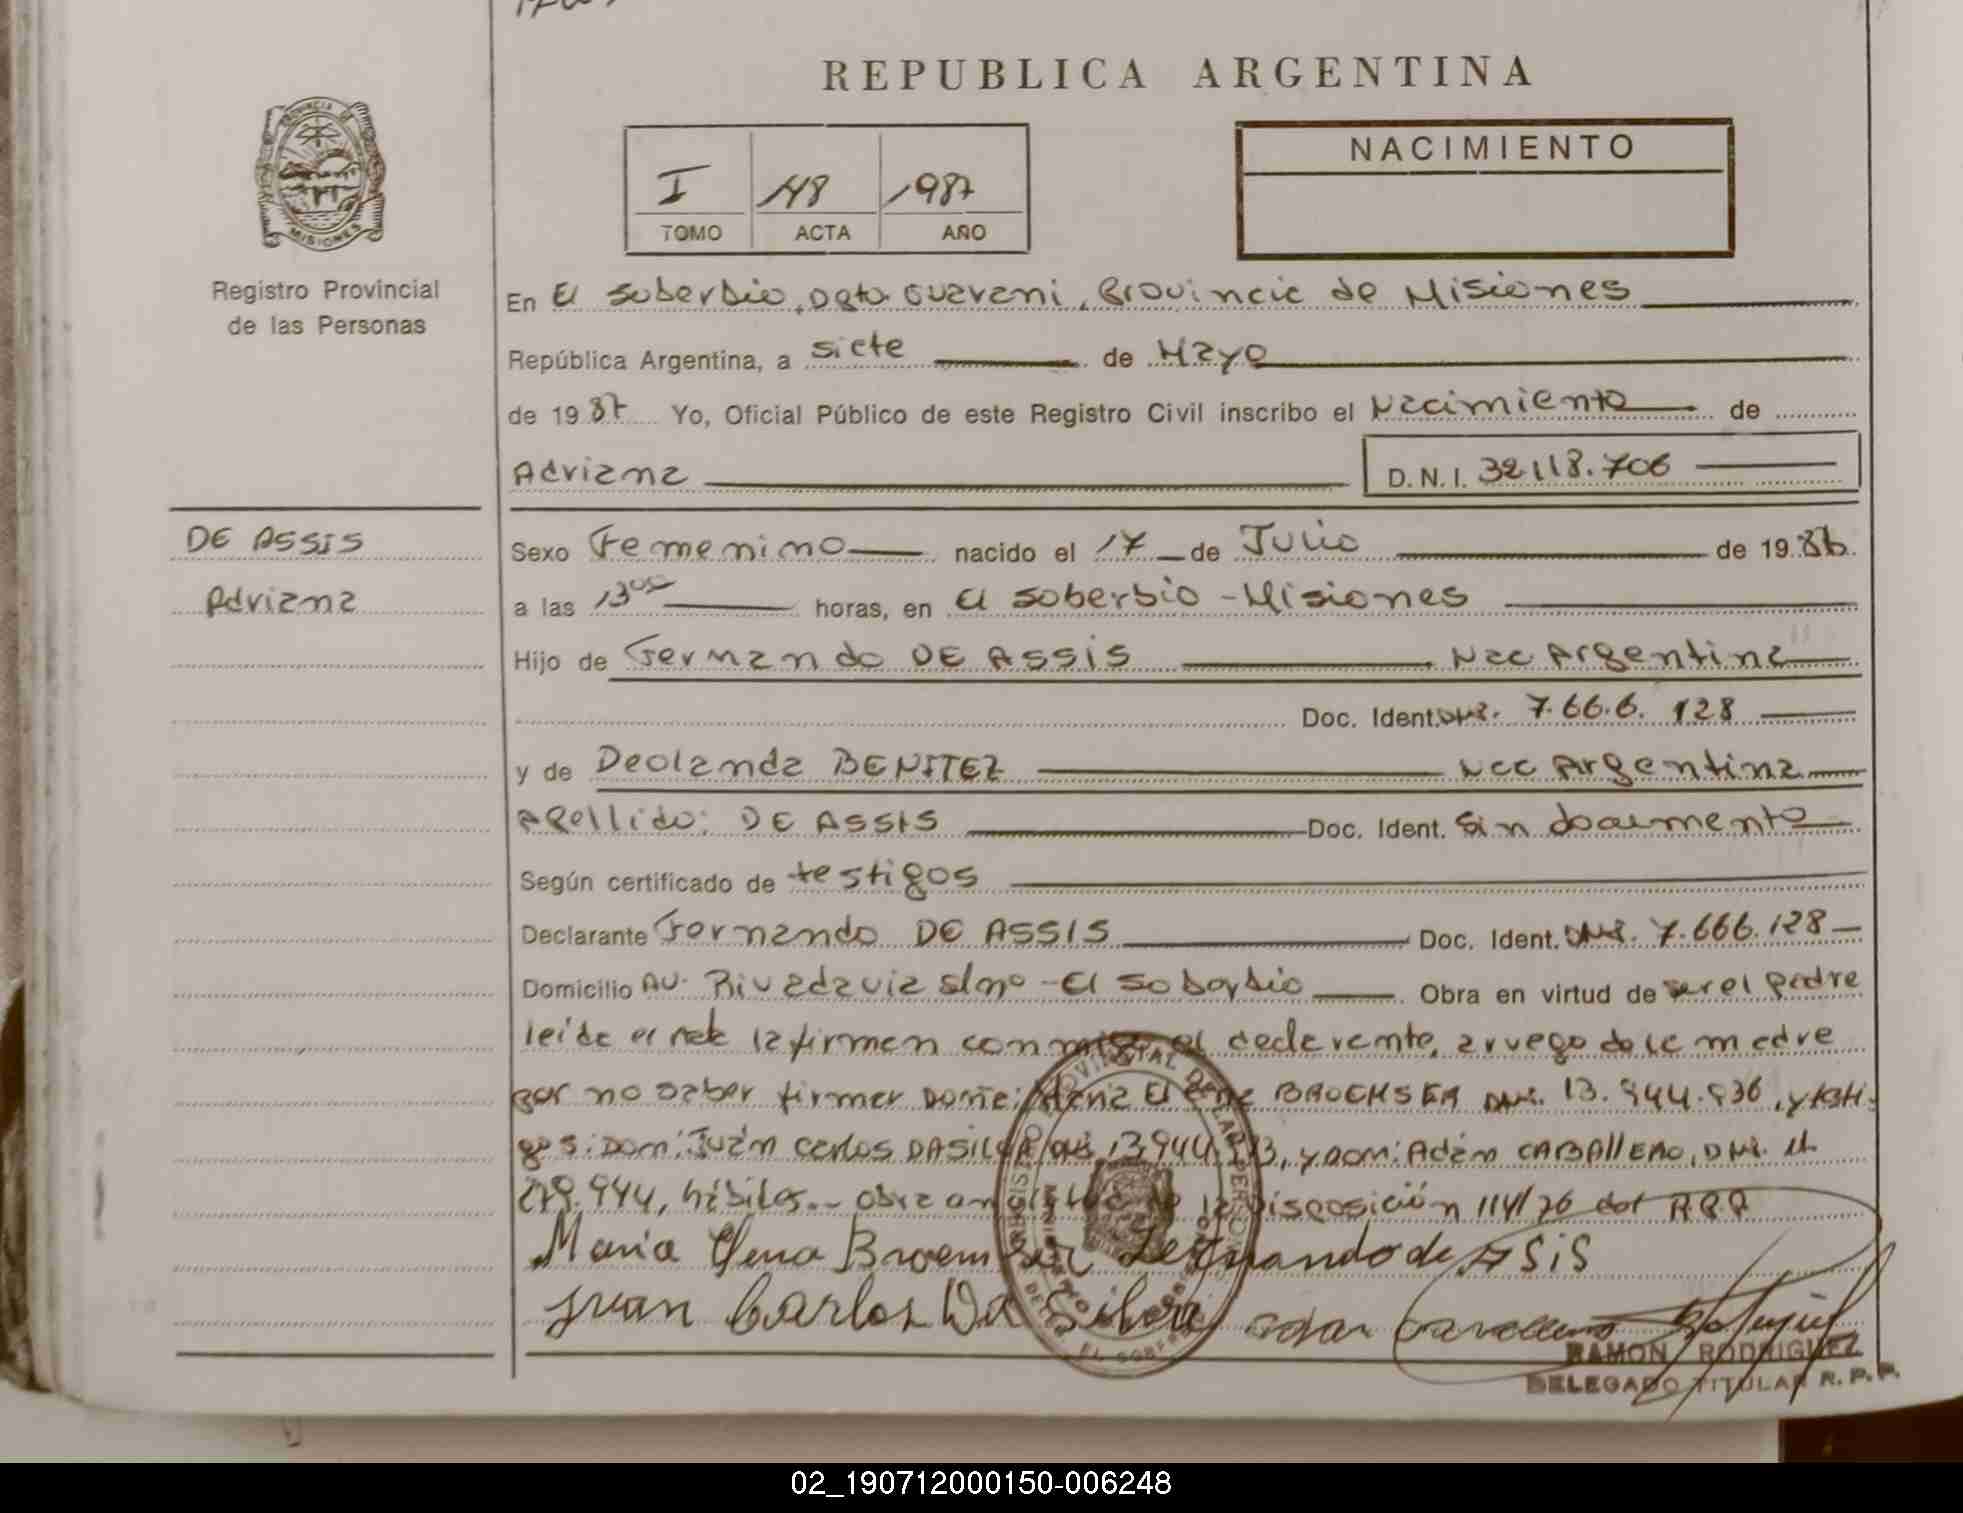 REPUBLICA ARGENTINA
PROVINCIA DE
MISIONES
Registro Provincial
de las Personas
I 118 1987
TOMO ACTA AÑO
NACIMIENTO
En El Soberbio, Dpto Guarani, Provincia de Misiones
República Argentina, a siete de Mayo
de 1987 Yo, Oficial Público de este Registro Civil inscribo el Nacimiento de
Adriana D.N.I. 32118.706
DE ASSIS
Adriana
Sexo Femenino nacido el 17 de Julio de 1986
a las 13 00 horas, en El Soberbio - Misiones
Hijo de Fernando DE ASSIS Nac Argentina
Doc. Ident. DNI. 7.666.128
y de Deolanda BENITEZ Nac Argentina
Apellido: DE ASSIS Doc. Ident. Sin documento
Según certificado de testigos
Declarante Fernando DE ASSIS Doc. Ident. DNI. 7.666.128
Domicilio AV. Rivadavia s/nº - El Soberbio Obra en virtud de ser el padre
leida el acta la firman conmigo el declarante, a ruego de la madre
por no saber firmar Doña: Maria Elena DNI. 13.944.936, y testi-
gos: Don: Juan Carlos DASILVA DNI, y don: Adan CABALLERO, DNI.
279.944, hábiles.- Obra en la Disposición 114/76 del R.P.P
Maria Elena Fernando de ASiS
Juan Carlos Da Silva
RAMON RODRIGUEZ
DELEGADO TITULAR R.P.P.
02_190712000150-006248